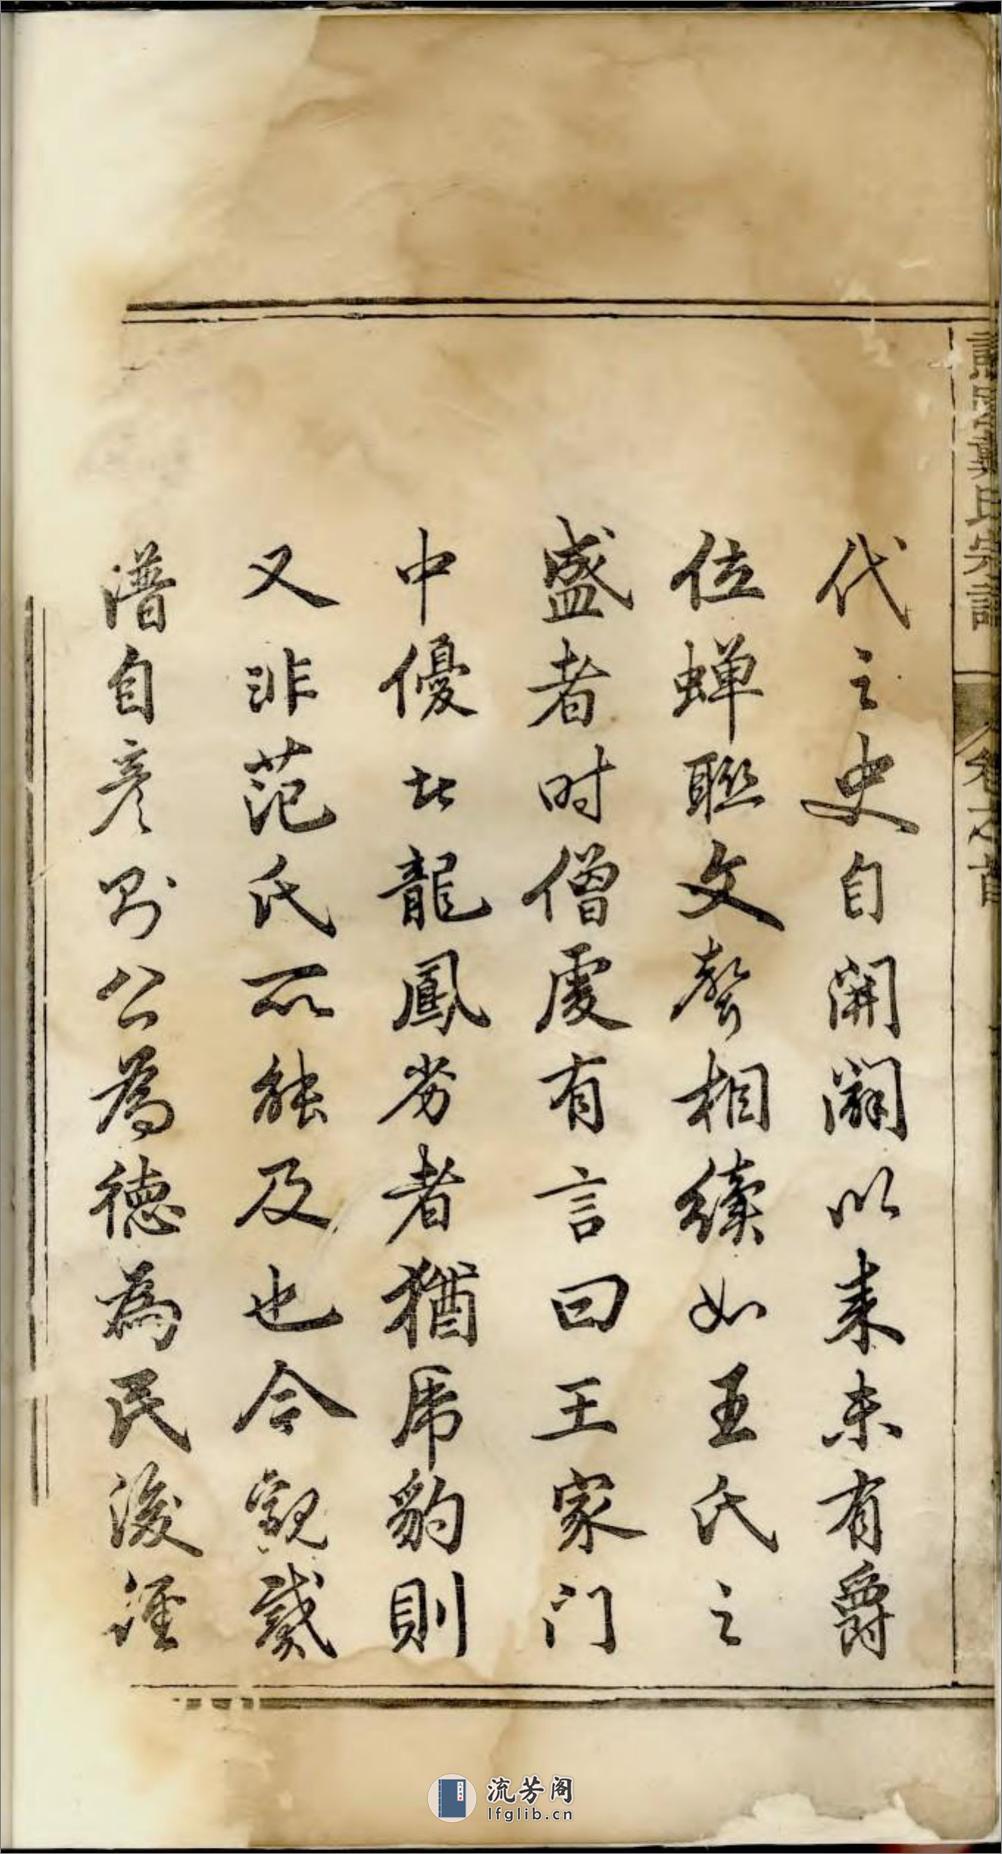 代之史自開闢以来未有爵
位蝉聯文聲相續如王氏之
盛者时僧虔有言曰王家门
中優比龍鳳劣者猶虎豹則
又非范氏所能及也今觀戴
譜自彦則公為德為民後經
氏宗譜
卷之首
流芳阁
lfglib.cn